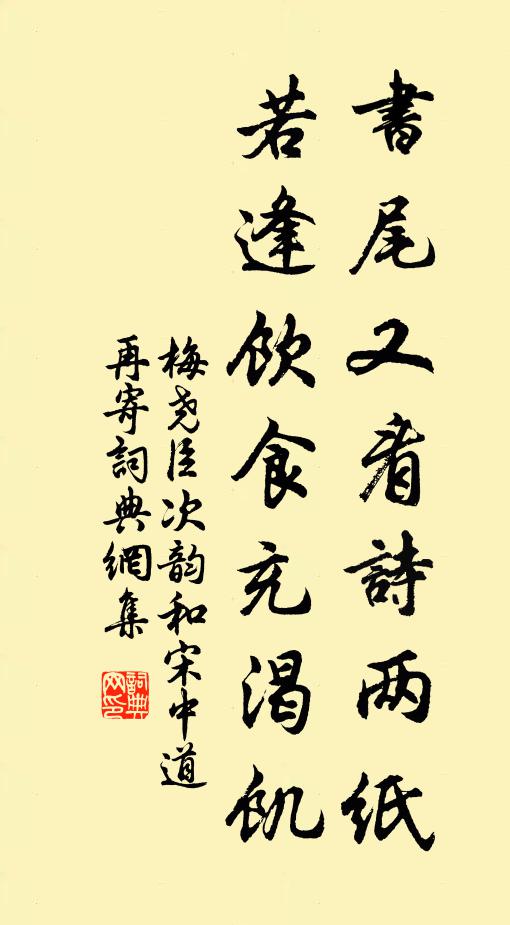 書尾又看詩两紙
若逢飲食充渴飢
梅尧臣次韵和宋中道
再寄詞典網集
詞典网印